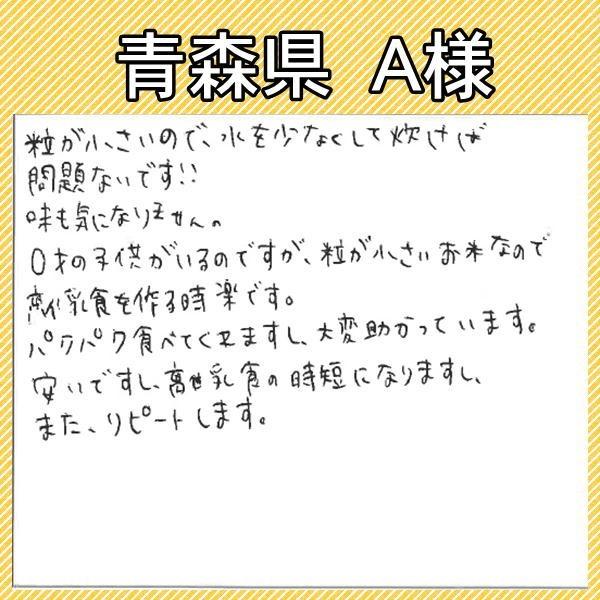 青森県 A様
粒が小さいので、水を少なくして炊けば
問題ないです!!
味も気になりません。
0才の子供がいるのですが、粒が小さいお米なので
離乳食を作る時楽です。
パクパク食べてくれますし、大変助かっています。
安いですし、離乳食の時短になりますし、
また、リピートします。